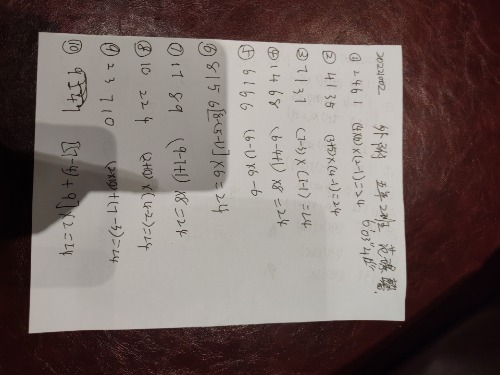 20221002 五年2班
① 2 4 6 1 (4×6)×(2-1)=24
② 4 1 3 5 (3+5)×(4-1)=24
③ 7 1 3 7 (7-3)×(7-1)=24
④ 1 4 6 8 (6-4+1)×8=24
⑤ 6 1 6 6 (6-1)×6-6
⑥ 8 1 5 6 [8-(5-1)]×6=24
⑦ 1 7 8 9 (9-7+1)×8=24
⑧ 10 2 2 4 (2+10)×(4-2)=24
⑨ 2 3 7 10 (2×10)+(7-3)=24
⑩ [(7-4)+9]×2=24